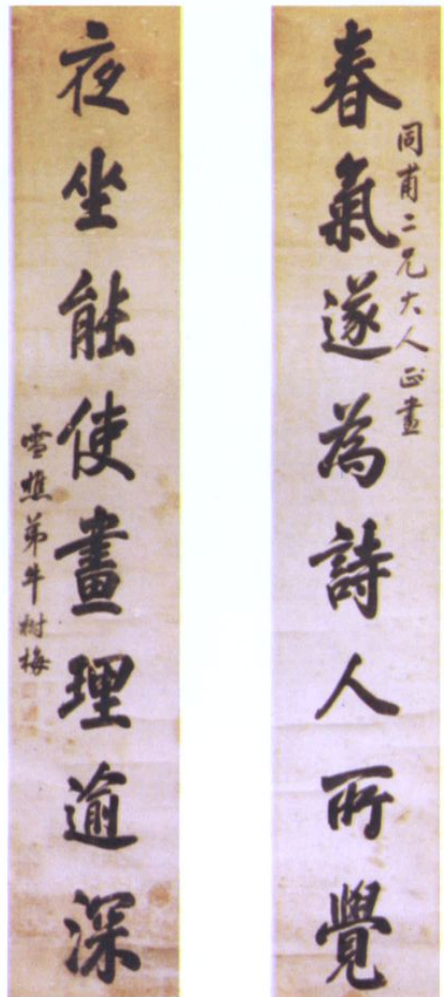 春氣遂為詩人所覺
同甫二兄大人正畫
夜坐能使畫理逾深
雪樵弟牛樹梅